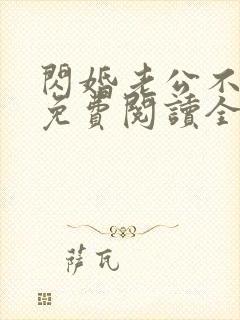 閃婚老公不
免費閱讀全
薩瓦